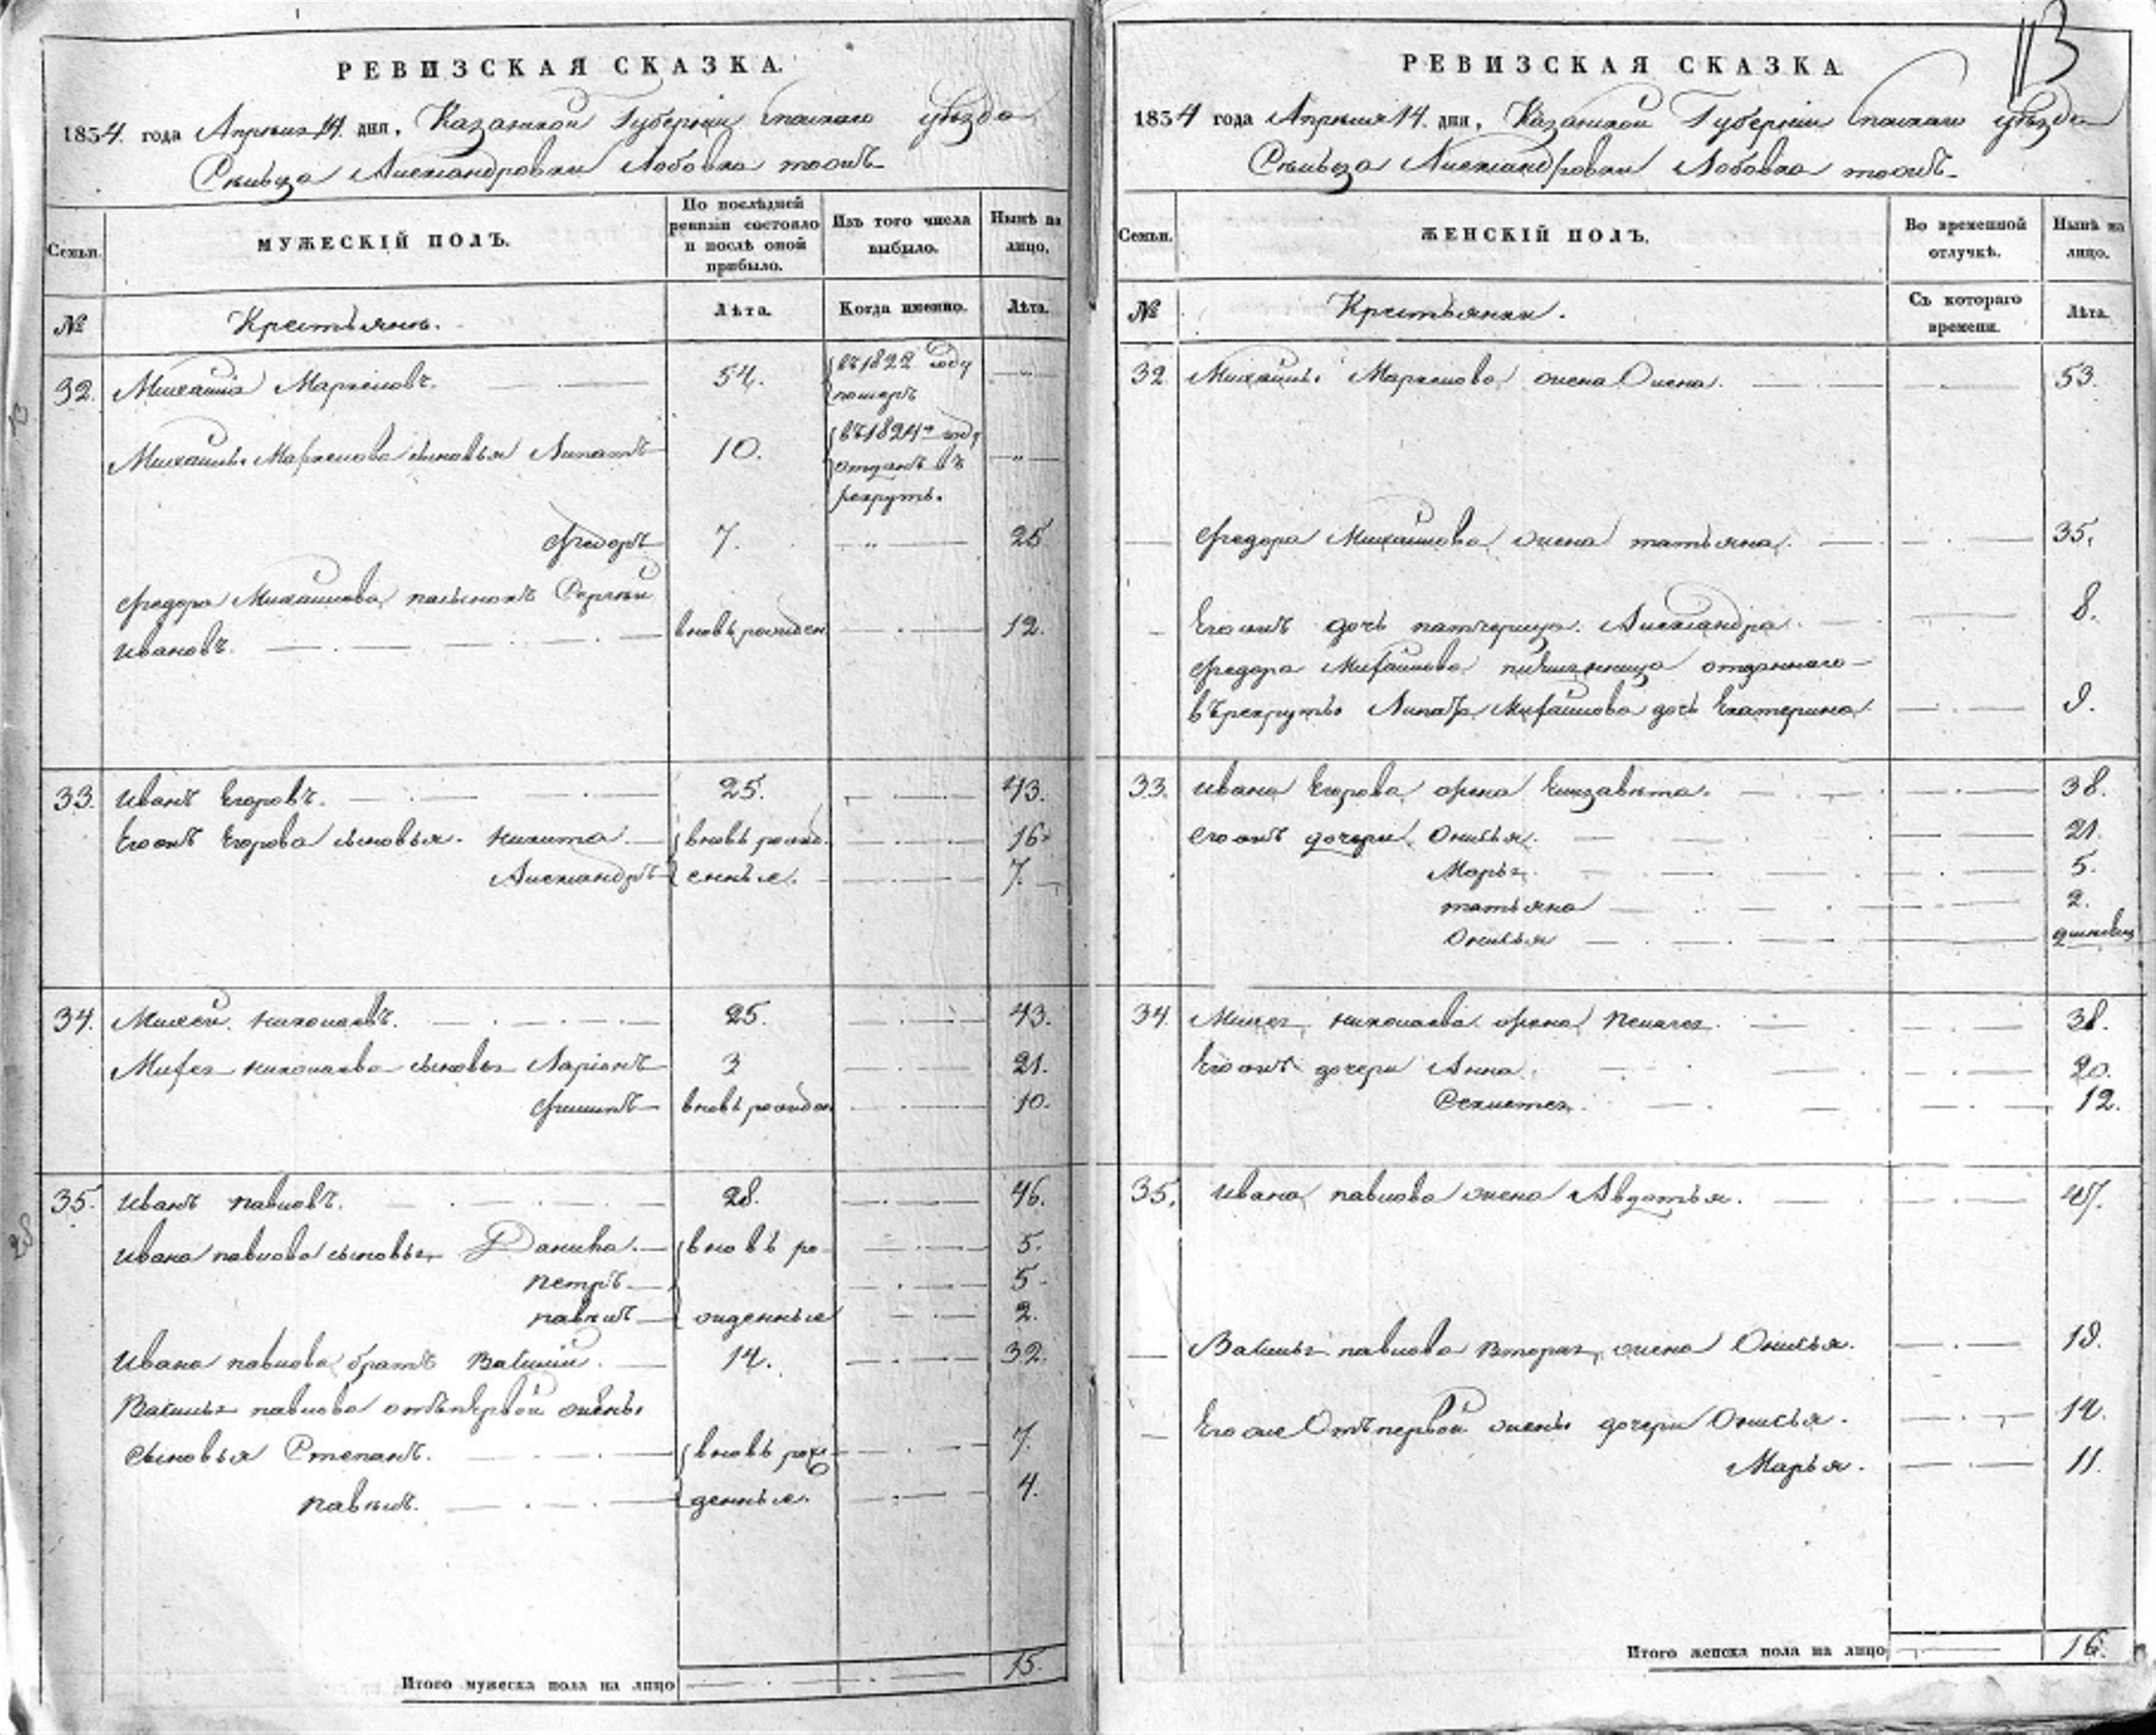 РЕВИЗСКАЯ СКАЗКА.
1834 года Апреля 14. дня, Казанской Губернии Спаскаго уѣзда
Сельца Александровки Лобовка тоожъ
Семьи.
МУЖЕСКІЙ ПОЛЪ.
По послѣдней ревизіи состояло и послѣ оной прибыло.
Изъ того числа выбыло.
Нынѣ на лицо.
№
Крестьянъ.
Лѣта.
Когда именно.
Лѣта.
32. Михаила Маркеловъ. 54. въ 1822 году — " —
померъ
Михаилы Маркелова сыновья Липатъ 10. въ 1824м году — " —
отданъ въ
рекруты.
Федоръ 7. — " — 25
Федора Михайлова пасынокъ Сергѣй
Ивановъ. вновь рожден 12.
33. Иванъ Егоровъ. 25. 43.
Егоже Егорова сыновья. Никита вновь рожд 16.
Александръ енные. 7.
34. Михей Николаевъ. 25. 43.
Михея Николаева сыновья Ларіонъ 3 21.
Филипъ вновь рожден 10.
35. Иванъ Павловъ. 28. 46.
Ивана Павлова сыновья Данила. вновь ро 5.
Петръ 5.
Павелъ жденные 2.
Ивана Павлова братъ Василий. 14. 32.
Василья Павлова отъ первой жены
сыновья Степанъ. вновь рож 7.
Павелъ. денные. 4.
Итого мужеска пола на лицо 15.
113
РЕВИЗСКАЯ СКАЗКА
1834 года Апреля 14. дня, Казанской Губернии Спаскаго уѣзда
Сельца Александровки Лобовка тоожъ
Семьи.
ЖЕНСКІЙ ПОЛЪ.
Во временной отлучкѣ.
Нынѣ на лицо.
№
Крестьянки.
Съ котораго времени.
Лѣта.
32. Михаилы Маркелова жена Олена. 53.
Федора Михайлова жена Татьяна. 35.
Егожъ дочь падчерица Александра. 8.
Федора Михайлова племянница отданнаго
въ рекруты Липата Михайлова дочь Екатерина 9.
33. Ивана Егорова жена Елизавета. 38.
Егожъ дочери Онисья. 21.
Марья. 5.
Татьяна 2.
Онисья
34. Михея Николаева жена Пелагея. 38.
Егожъ дочери Анна. 20.
Секлетея. 12.
35. Ивана Павлова жена Авдотья. 47.
Василья Павлова вторая жена Онисья. 19.
Егоже отъ первой жены дочери Онисья. 12.
Марья. 11.
Итого женска пола на лицо 16.